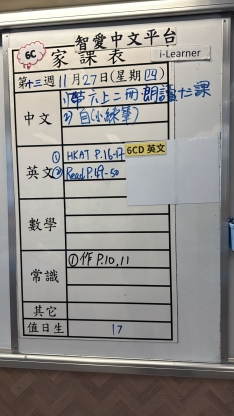 智愛中文平台
6C 家課表 i-Learner
第十三週 11月27日(星期四)
中文 1) 帶六上二冊 朗讀十二課
2) 自(小練筆)
英文 ① HKAT P.16-17
② Read P.49-50
6CD 英文
數學
常識 ① 作 P.10,11
其它
值日生 17